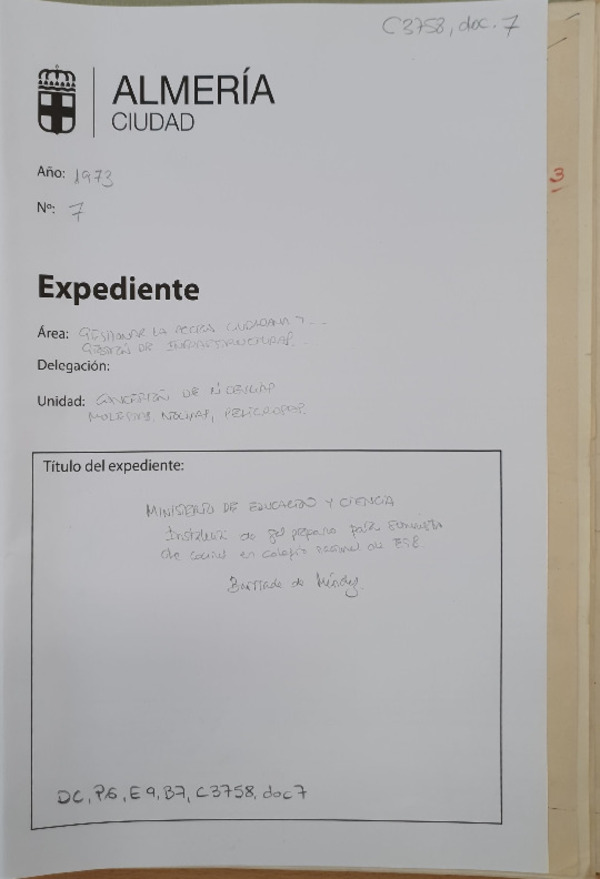 C3758, doc. 7
ALMERÍA
CIUDAD
Año: 1973
Nº: 7
3
Expediente
Área: GESTIONAR LA CIUDADANA Y
GESTIÓN DE INFRAESTRUCTURAS
Delegación:
Unidad: CONCESIÓN DE LICENCIAS
MOLESTAS, NOCIVAS, PELIGROSAS.
Título del expediente:
MINISTERIO DE EDUCACIÓN Y CIENCIA
de gas propano para suministro
de cocinas en colegio nacional de EGB.
Barriada de
DC, P6, E9, B7, C3758, doc7